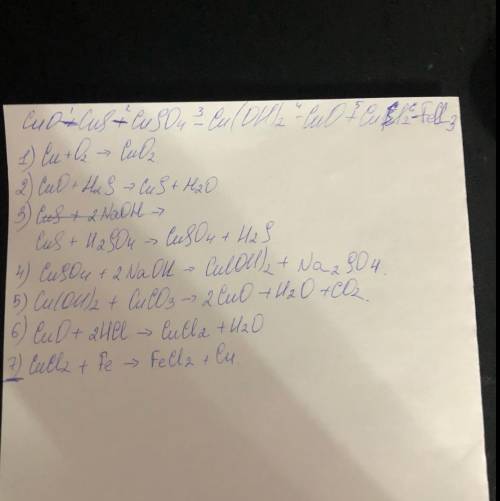 CuO -¹ CuS -² CuSO4 -³ Cu(OH)2 -⁴ CuO -⁵ CuCl2 -⁶ FeCl3
1) Cu + O2 → CuO2
2) CuO + H2S → CuS + H2O
3) CuS + 2NaOH →
CuS + H2SO4 → CuSO4 + H2S
4) CuSO4 + 2NaOH → Cu(OH)2 + Na2SO4.
5) Cu(OH)2 + CuCO3 → 2CuO + H2O + CO2.
6) CuO + 2HCl → CuCl2 + H2O
7) CuCl2 + Fe → FeCl2 + Cu